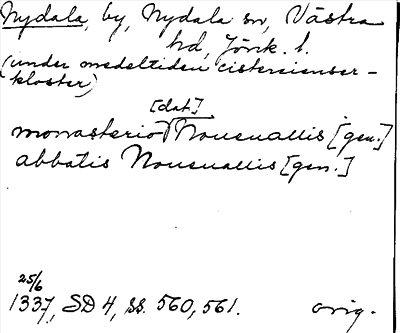 Nydala, by, Nydala sn, Västra
hd, Jönk. l.
(under medeltiden cistercienser-
kloster)
[dat]
monasterio Noueuallis [gen.]
abbatis Noueuallis [gen.]
25/6
1337, SD 4, ss. 560, 561. orig.